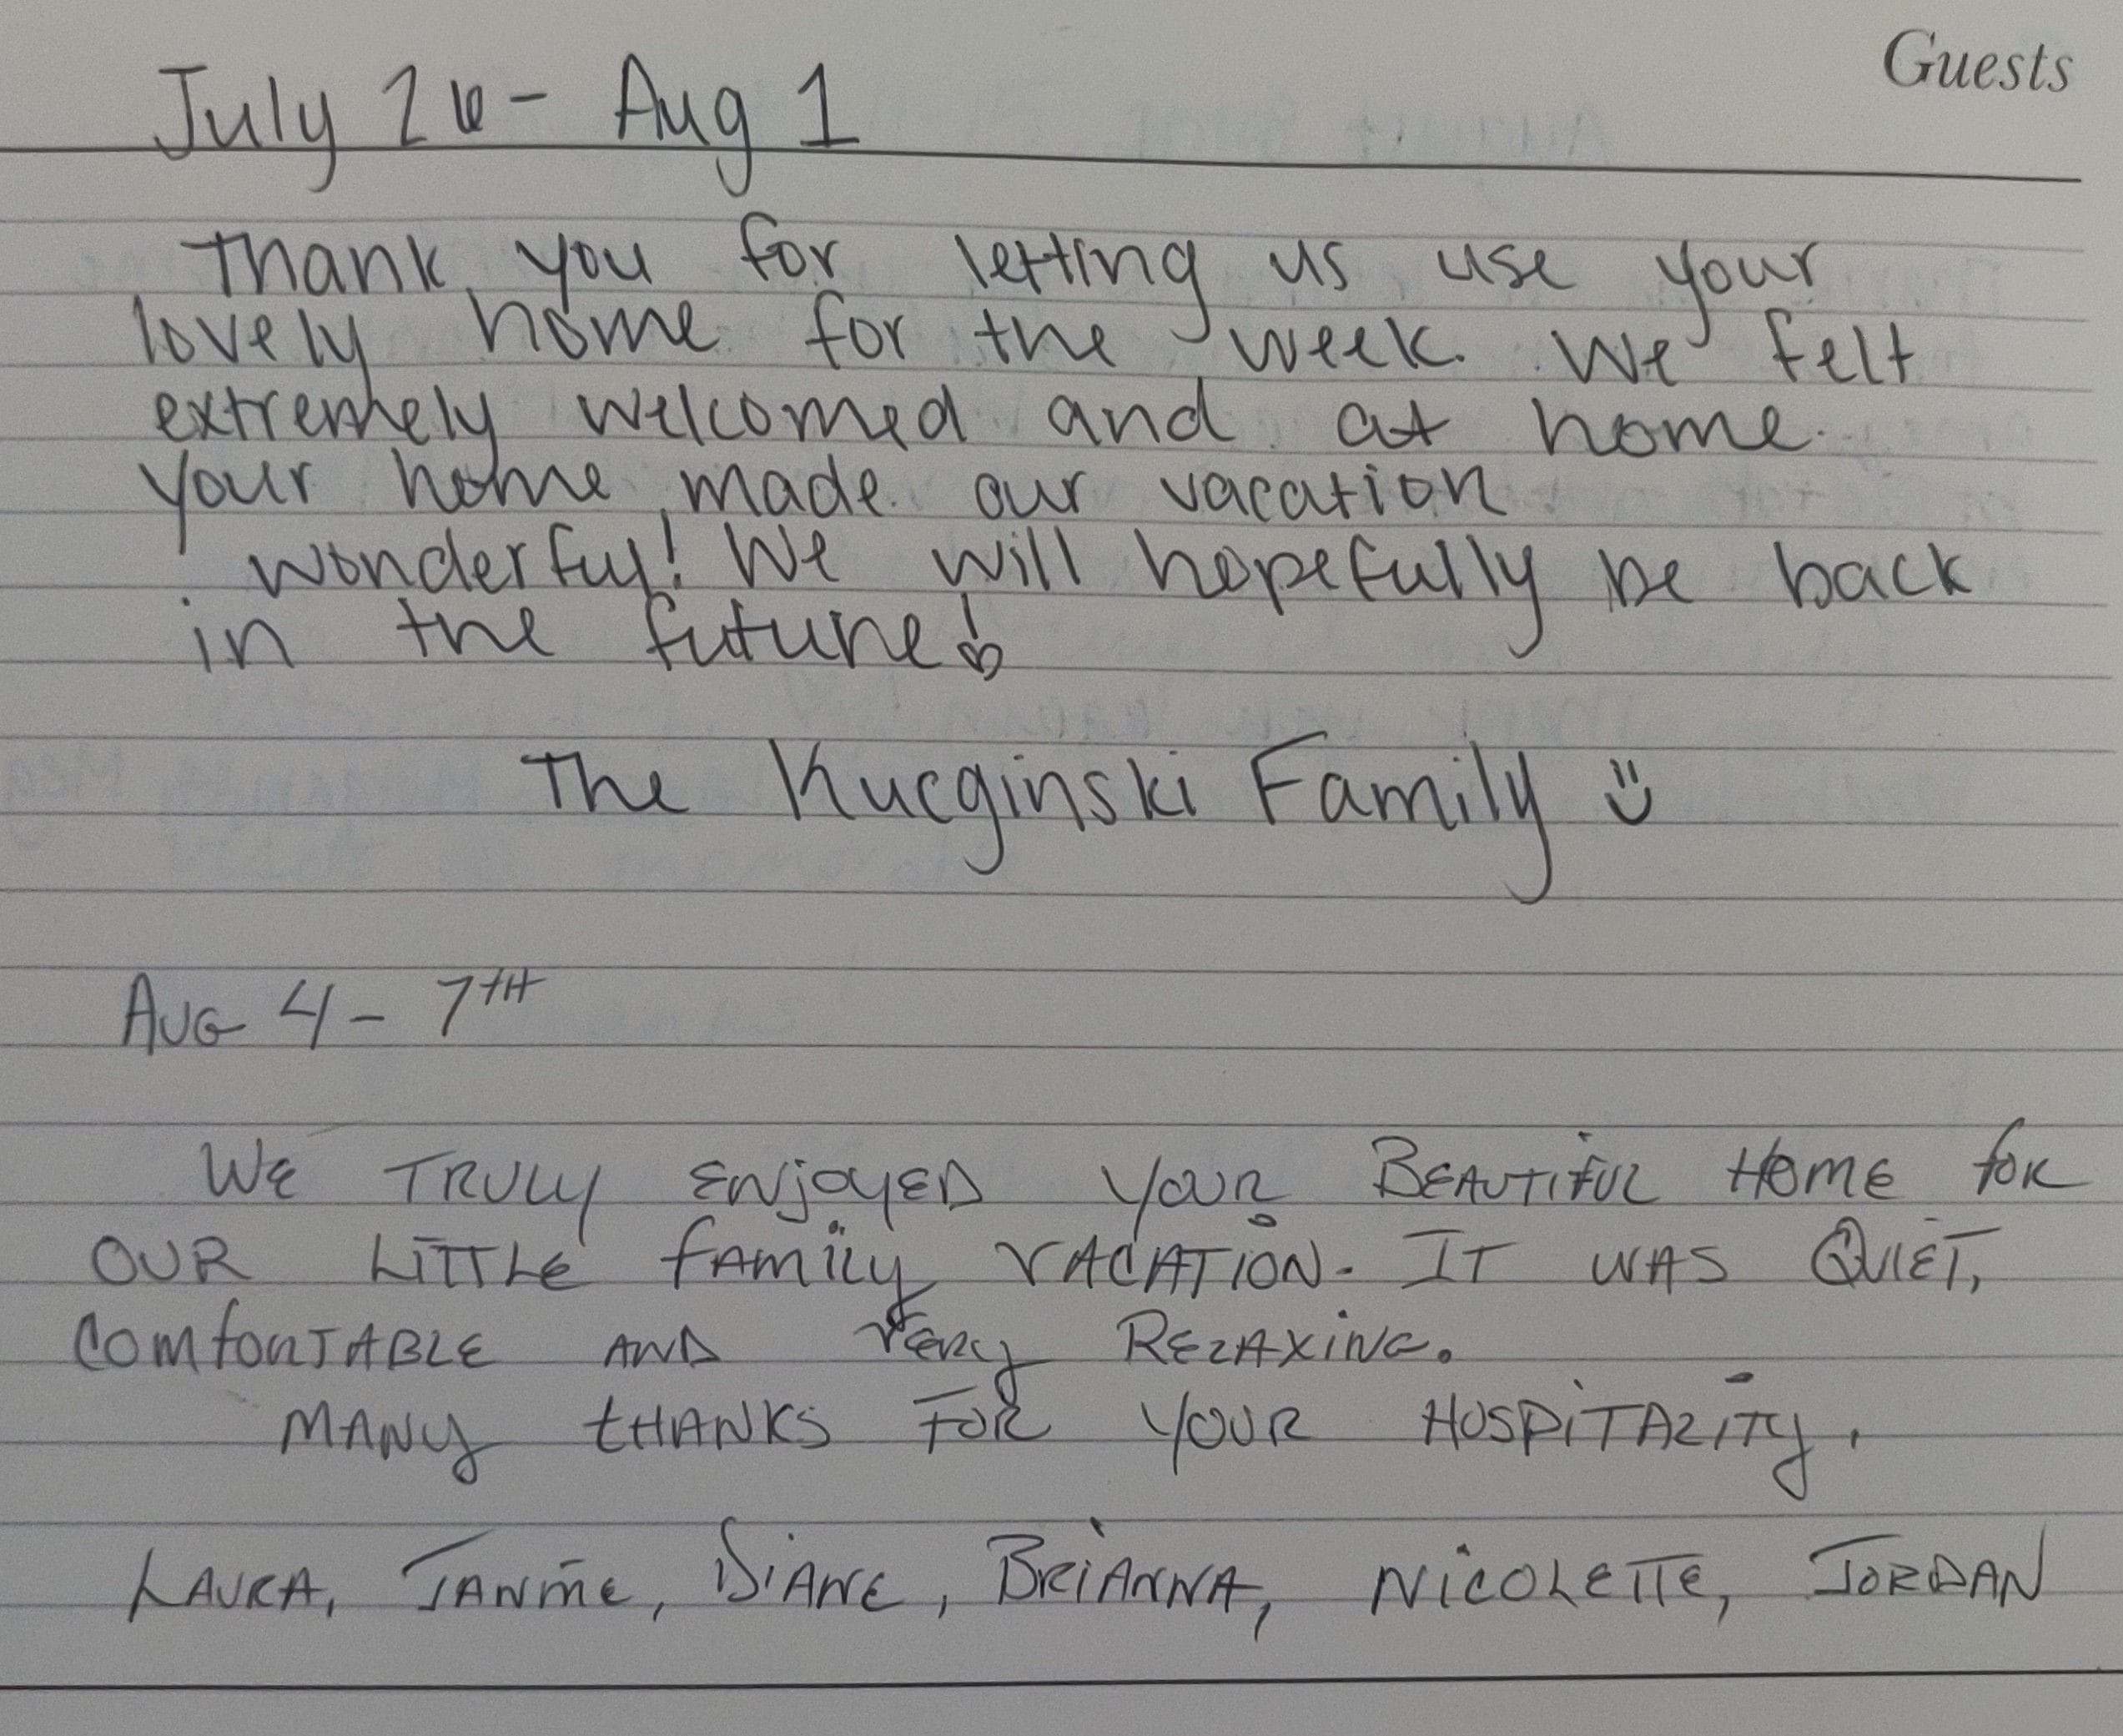 Guests
July 26 - Aug 1
Thank you for letting us use your
lovely home for the week. We felt
extremely welcomed and at home.
Your home made our vacation
wonderful! We will hopefully be back
in the future!
The Kucginski Family
AUG 4 - 7TH
WE TRULY ENJOYED YOUR BEAUTIFUL HOME FOR
OUR LITTLE FAMILY VACATION. IT WAS QUIET,
COMFORTABLE AND VERY RELAXING.
MANY THANKS FOR YOUR HOSPITALITY.
LAURA, DIANE, BRIANNA, NICOLETTE, JORDAN